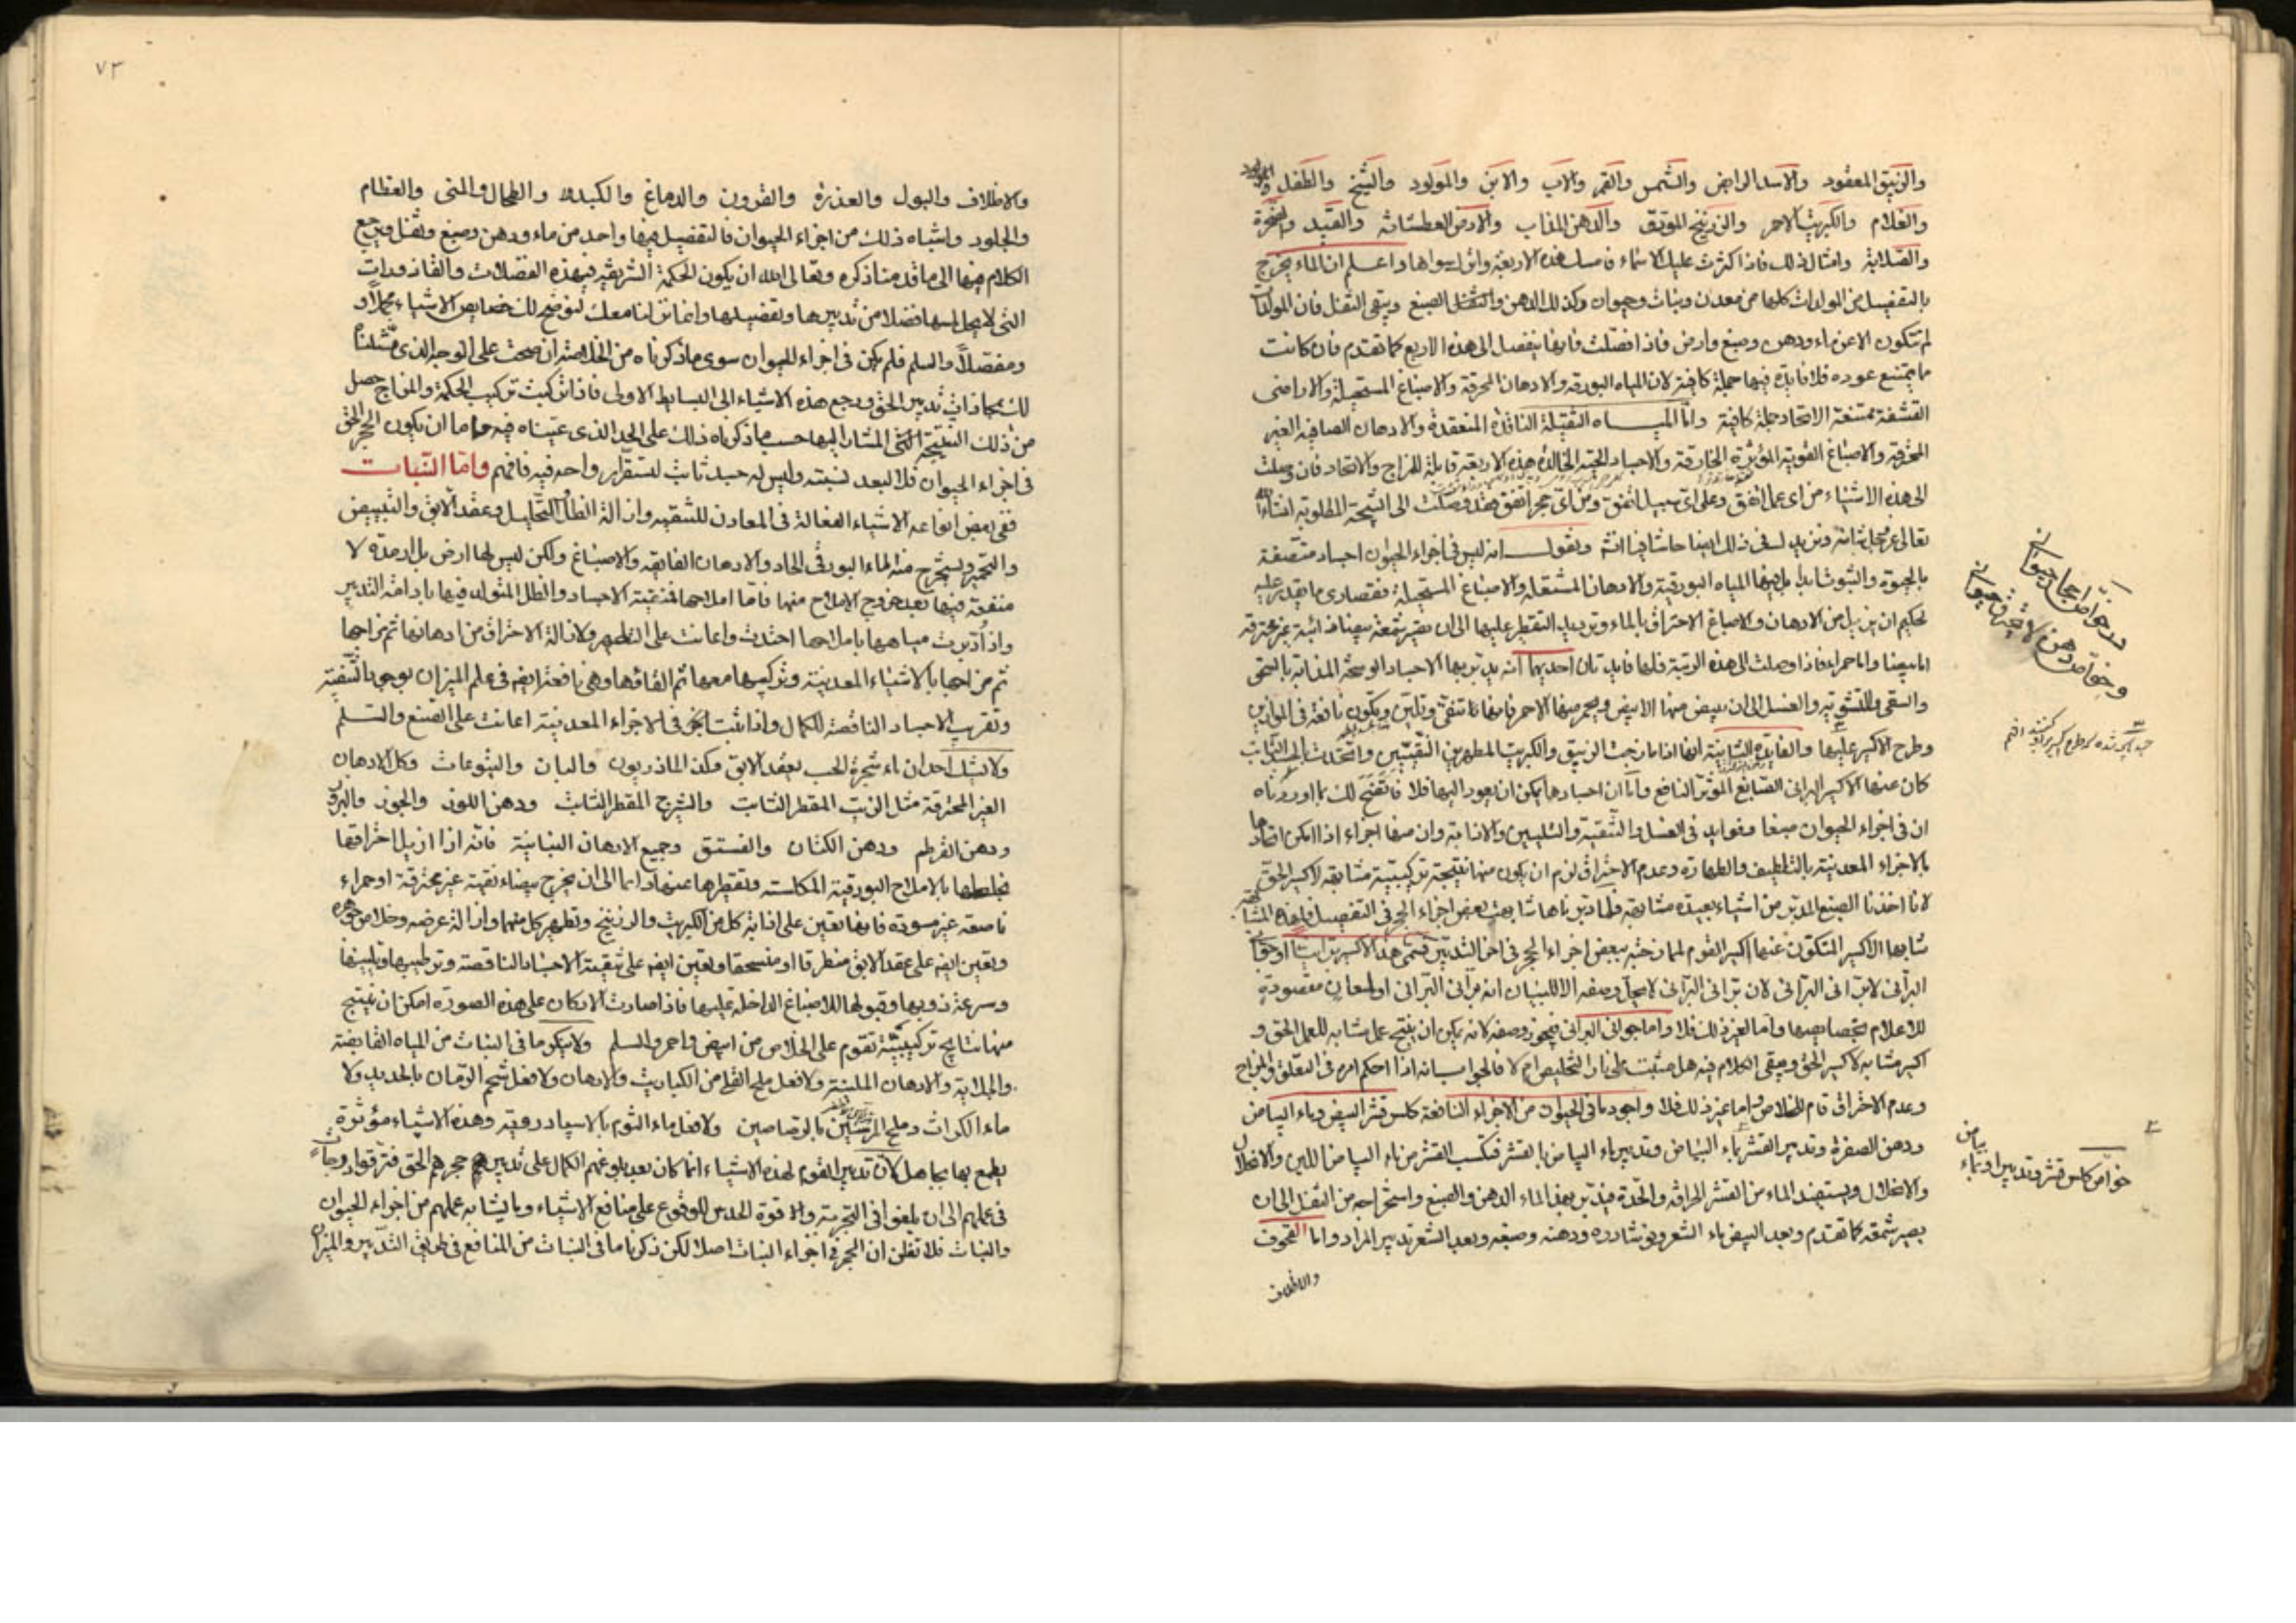 والزيبق المعقود والاسد الرابض والشمس والقمر والاب والابن والمولود والشيخ والطفل
والغلام والكبريت الاحمر والزرنيخ الموثق والدهن المذاب والارض العطشانه والقيد والصخرة
والصلابة وامثال ذلك فاذا كثرت عليك الاسماء هذه الاربعة واترك سواها واعلم ان الماء يخرج
بالتفصيل من المولدات كلها من معدن ونبات وحيوان وكذلك الدهن والصبغ ويبقى الثفل فان المولدات
لم تتكون الا عن ماء ودهن وصبغ وارض فاذا فصلت فانها تنفصل الى هذه الاربع كما تقدم فان كانت
مما يمتنع عوده فلا فايدة فيها جملة كافية لان المياه البورقيه والادهان المحرقة والاصباغ المستحيلة والاراضى
القشفة ممتنعة الاتحاد جملة كافية وامّا المياه الثقيلة النافذة المنعقدة والادهان الصافيه الغير
المحترقه والاصباغ القوية المؤثرة الخارقة والاجساد الحيّه الخالدة هذه الاربعة قابلة للمزاج والاتحاد فان وصلت
الى هذه الاشياء من اى عمل اتفق وعلى اى سبيل اتفق ومن اى حجر اتفق فقد وصلت الى النتيجة المطلوبة انشاء الله
تعالى ونزيدك فى ذلك ايضا ونقول انه ليس فى اجزاء الحيوان اجساد متصفة
بالحيوة والثبوت ابدا بل فيها المياه البورقية والادهان المشتعله والاصباغ المستحيلة فقصارى ما يقدر عليه
الحكيم ان يزيل من الادهان والاصباغ الاحتراق بالماء وترديد التقطير عليها الى ان يصير شمعة بيضاء ذائبة غير محترقة
اما بيضا واما حمراء فاذا وصلت الى هذه الرتبة فلها فايدتان احديهما انه يدبر بها الاجساد الوسخة المذابة بالسحق
والسقى والتشوية والغسل الى ان يبيض منها الابيض ويحمر منها الاحمر فانها تنقى وتلين ويكون نافعة فى الموازين
وطرح الاكسير عليها والفايدة الثانية انها اذا مازجت الزيبق والكبريت المطهرين النقيين واتحدت بالجسد الثابت
كان عنها الاكسير البرانى الصابغ المؤثر النافع وامّا ان اجسادها يمكن ان يعود اليها فلا فاتضح لك بما اوردناه
ان فى اجزاء الحيوان منفعا وفوايد فى الغسل والتنقية والتليين والاذابة وان منها اجزاء اذا امكن اتحادها
بالاجزاء المعدنية بالتلطيف والطهارة وعدم الاحتراق لزم ان يكون منها نتيجة تركيبية مشابهه لاكسير الحق
لانا اخذنا الصبغ المدبر من اشياء بعيدة مشابهة فلما دبرناها شابهت بعض اجزاء الحجر فى التفصيل
شابهها الاكسير المتكون عنها اكسير القوم لممازجته ببعض اجزاء الحجر فى اخر التدبير فسمى هذا الاكسير
البرانى لا برانى البرانى لان برانى البرانى لا يحل وصفه الا لتبيان انه برانى البرانى او لمعان مقصودة
للاعلام بخصايصها وامّا لغير ذلك فلا واما جوانى البرانى فيجوز وصفه لانه يمكن ان ينتج عملا مشابه للعمل الحق و
اكسير مشابه لاكسير الحق ويبقى الكلام فيه هل يثبت على نار التخليص ام لا فالجواب انه اذا احكم امره فى التعلق والمزاج
وعدم الاحتراق قام للخلاص واما غير ذلك فلا واجود ما فى الحيوان من الاجزاء النافعة كلس قشر البيض وماء البياض
ودهن الصفرة وتدبير القشر بماء البياض وتدبير ماء البياض بالقشر فيكسب القشر من ماء البياض اللين والانحلال
والانحلال ويستفيد الماء من القشر الحرافة والحدّة فيدبر بهذا الماء الدهن والصبغ واستخراجه من الثفل الى ان
يصير شمعة كما تقدم وبعد البيض ماء الشعر ونوشادره ودهنه وصبغه وبعد الشعر تدبير المراد واما القحوف
والاظلاف
در خواص اجزاء حيوانى
خواص كلس قشر وتدبير او بماء بياض
٧٣
والاظلاف والبول والعذرة والقرون والدماغ والكبد والطحال والمنى والعظام
والجلود واشباه ذلك من اجزاء الحيوان فالتفصيل فيها واحد من ماء ودهن وصبغ وثفل ويرجع
الكلام فيها الى ما قدمنا ذكره وتعالى الله ان يكون الحكمة الشريفة فى هذه الفضلات والقاذورات
التى لا يحل لمسها فضلا من تدبيرها وتفصيلها وانما نزلنا معك لنوضح لك خصايص الاشياء مجملاً و
ومفصلاً والسلم فلم يكن فى اجزاء الحيوان سوى ما ذكرناه من الخلاصة ان صحت على الوجه الذى مثلناه
لك تدبير الحق ورجع هذه الاشياء الى البسايط الاولى فاذا تركبت تركيب الحكمة والمزاج حصل
من ذلك النتيجة التى المشار اليها حسب ما ذكرناه ذلك على الحد الذى عيناه فيه واما ان يكون الحجر الحق
فى اجزاء الحيوان فلا لبعد نسبته وليس له جسد ثابت لتستقر ارواحه فيه فافهم وامّا النّبات
ففى بعض انواعه الاشياء الفعالة فى المعادن للتنقيه وازالة الظل والتحليل وعقد الابق والتبييض
والتحمير ويستخرج منه الماء البورقى الحاد والادهان الفايقه والاصباغ ولكن ليس لها ارض بل ارمدة لا
منفعة فيها بعد خروج الاملاح منها فامّا املاحها فمنقية الاجساد والظل المتولد فيها بادامة التدبير
واذا دبرت مياهها باملاحها احتدّت واعانت على التطهير ولازالة الاحتراق من ادهانها ثم مزاجها
ثم مزاجها بالاشياء المعدنية وتركيبها معها ثم القاؤها وهى نافعة ايضا فى علم الميزان يوجب التنقية
وتقريب الاجساد الناقصة للكمال واذا ثبتت فى الاجزاء المعدنية اعانت على الصبغ والسلم
ولا يشك احد ان ماء شجرة الحب يعقد الابق وكذا الماذريون والبان واليتوعات وكل الادهان
الغير المحترقة مثل الزيت المقطر الثابت والشيرج المقطر الثابت ودهن اللوز والجوز والبزر
ودهن القرطم ودهن الكتان والفستق وجميع الادهان النباتية فانه اذا ازيل احتراقها
بخلطها بالاملاح البورقية المكلسة وتقطيرها عنها دايما الى ان يخرج بيضاء نقية غير محترقة او حمراء
ناصعه غير مسودة فانها تعين على اذابة كل من الكبريت والزرنيخ وتطهير كل منها وازالة عرضه وخلاص جوهره
وتعين ايضا على عقد الابق منطرقا او منسحقا وتعين ايضا على تنقية الاجساد الناقصة وترطيبها وتليينها
وسرعة ذوبها وقبولها للاصباغ الداخلة عليها فاذا صارت الاركان على هذه الصورة امكن ان ينتج
منها نتايج تركيبيّة تقوم على الخلاص من ابيض واحمر والسلم ولا ينكر ما فى النبات من المياه القابضة
والجلاية والادهان الملينة ولا فعل ملح القلى من الكباريت والادهان ولا فعل شحم الرمان بالحديد ولا
ماء الكراث وملح بالرصاصين ولا فعل ماء الثوم بالاسياد روية وهذه الاشياء مؤثرة
يطمع بها الجاهل لان تدبير القوم لهذه الاشياء انما كان بعد بلوغهم الكمال على تدبير حجرهم الحق
فى علمهم الى ان بلغوا فى التجربة والا قوة الحدس للوقوع على منافع الاشياء وما يشابه عملهم من اجزاء الحيوان
والنبات فلا تظن ان الحجر فى اجزاء النبات اصلا لكن ذكرنا ما فى النبات من المنافع فى طريقى التدبير والميزان